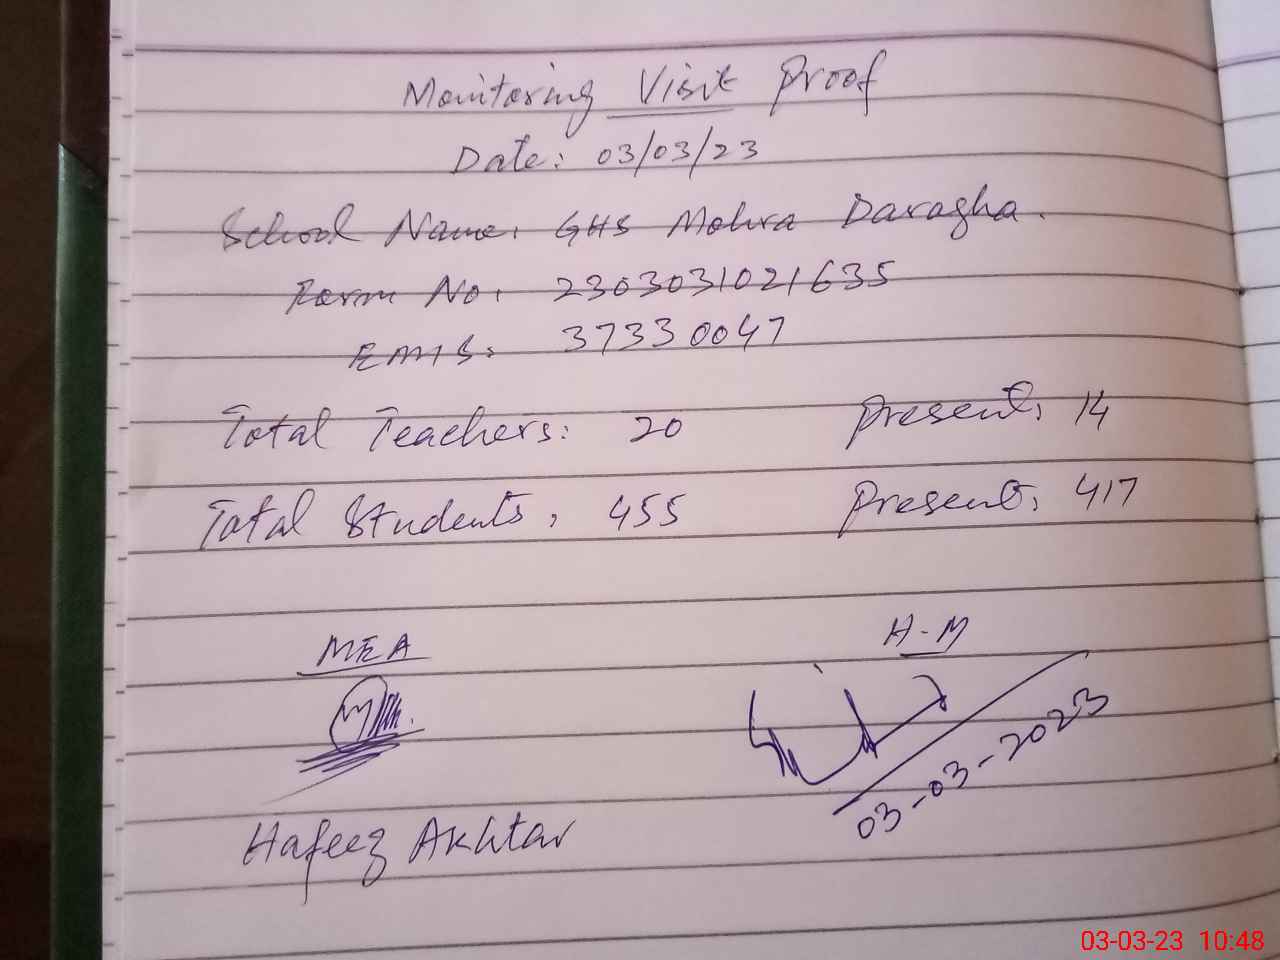 Monitoring Visit Proof
Date: 03/03/23
School Name: GHS Mohra Daragha.
Form No. 2303031021635
EMIS: 37330047
Total Teachers: 20 Present: 14
Total Students: 455 Present: 417
MEA H-M
03-03-2023
Hafeez Akhtar
03-03-23 10:48